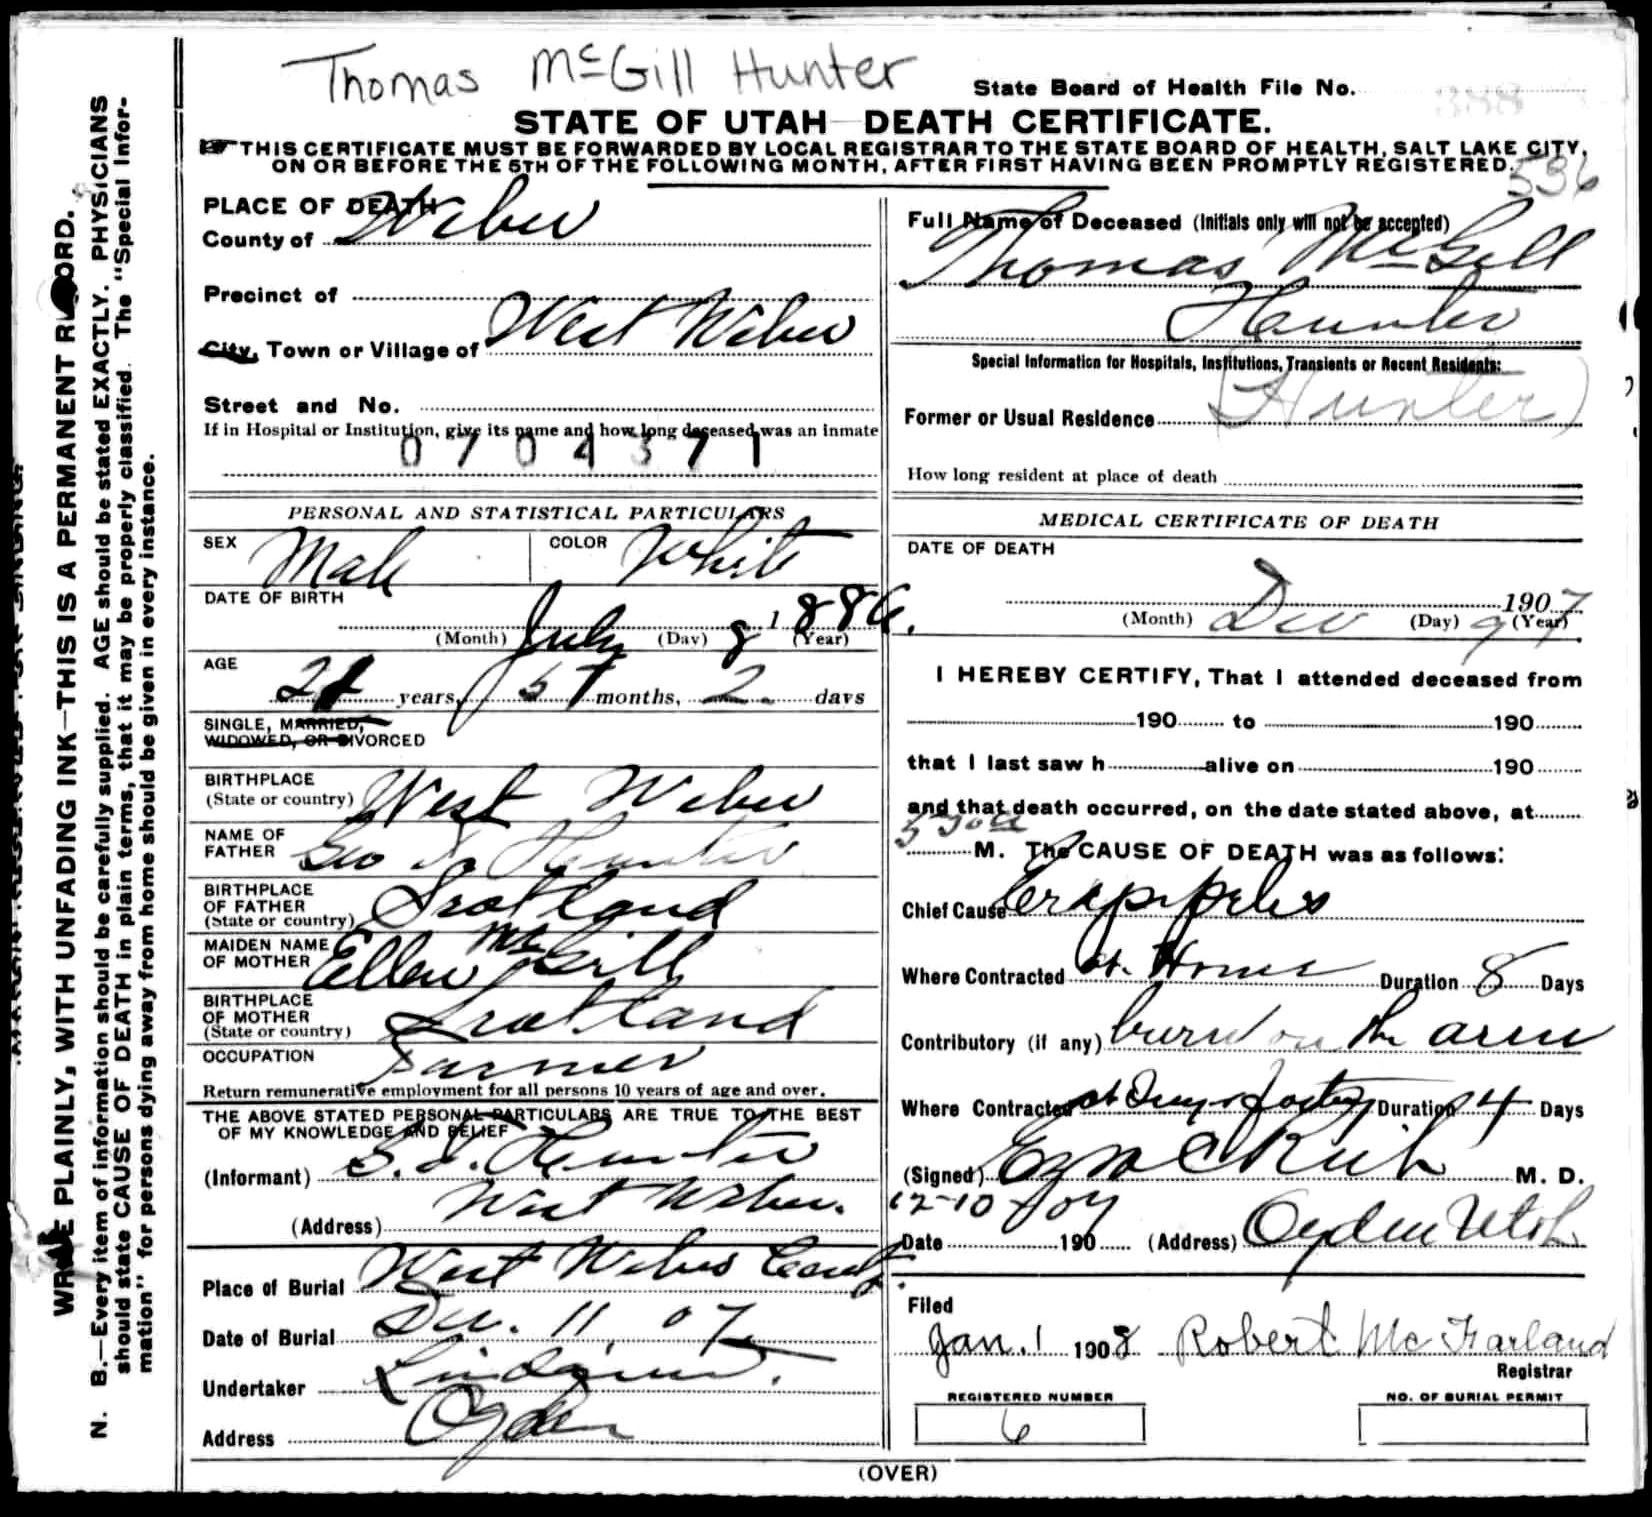 Thomas McGill Hunter
State Board of Health File No.
388
STATE OF UTAH—DEATH CERTIFICATE.
THIS CERTIFICATE MUST BE FORWARDED BY LOCAL REGISTRAR TO THE STATE BOARD OF HEALTH, SALT LAKE CITY,
ON OR BEFORE THE 5TH OF THE FOLLOWING MONTH, AFTER FIRST HAVING BEEN PROMPTLY REGISTERED.
536
PLACE OF DEATH
County of Weber
Precinct of
City, Town or Village of West Weber
Street and No.
If in Hospital or Institution, give its name and how long deceased was an inmate
0704371
PERSONAL AND STATISTICAL PARTICULARS
SEX Male COLOR White
DATE OF BIRTH
(Month) July (Day) 8 1886. (Year)
AGE
21 years, 5 months, 2 days
SINGLE, MARRIED,
WIDOWED, OR DIVORCED
BIRTHPLACE
(State or country) West Weber
NAME OF
FATHER Geo Hunter
BIRTHPLACE
OF FATHER
(State or country) Scotland
MAIDEN NAME
OF MOTHER Ellen McGill
BIRTHPLACE
OF MOTHER
(State or country) Scotland
OCCUPATION Farmer
Return remunerative employment for all persons 10 years of age and over.
THE ABOVE STATED PERSONAL PARTICULARS ARE TRUE TO THE BEST
OF MY KNOWLEDGE AND BELIEF
(Informant) Hunter
(Address) West Weber.
Place of Burial West Weber Cemty.
Date of Burial Dec. 11, 07
Undertaker
Address Ogden
Full Name of Deceased (Initials only will not be accepted)
Thomas McGill
Hunter
Special Information for Hospitals, Institutions, Transients or Recent Residents:
(Hunter)
Former or Usual Residence
How long resident at place of death
MEDICAL CERTIFICATE OF DEATH
DATE OF DEATH
1907
(Month) Dec (Day) 9 (Year)
I HEREBY CERTIFY, That I attended deceased from
190 to 190
that I last saw h alive on 190
and that death occurred, on the date stated above, at
M. The CAUSE OF DEATH was as follows:
Chief Cause
Where Contracted at Home Duration 8 Days
Contributory (if any) burn on the arm
Where Contracted Duration 14 Days
(Signed) Ezra C Rich M. D.
12-10 /07
Date 190 (Address) Ogden Utah
Filed
Jan. 1 1908 Robert McFarland
Registrar
REGISTERED NUMBER
6
NO. OF BURIAL PERMIT
(OVER)
WRITE PLAINLY, WITH UNFADING INK—THIS IS A PERMANENT RECORD.
N. B.—Every item of information should be carefully supplied. AGE should be stated EXACTLY. PHYSICIANS
should state CAUSE OF DEATH in plain terms, that it may be properly classified. The "Special Infor-
mation" for persons dying away from home should be given in every instance.